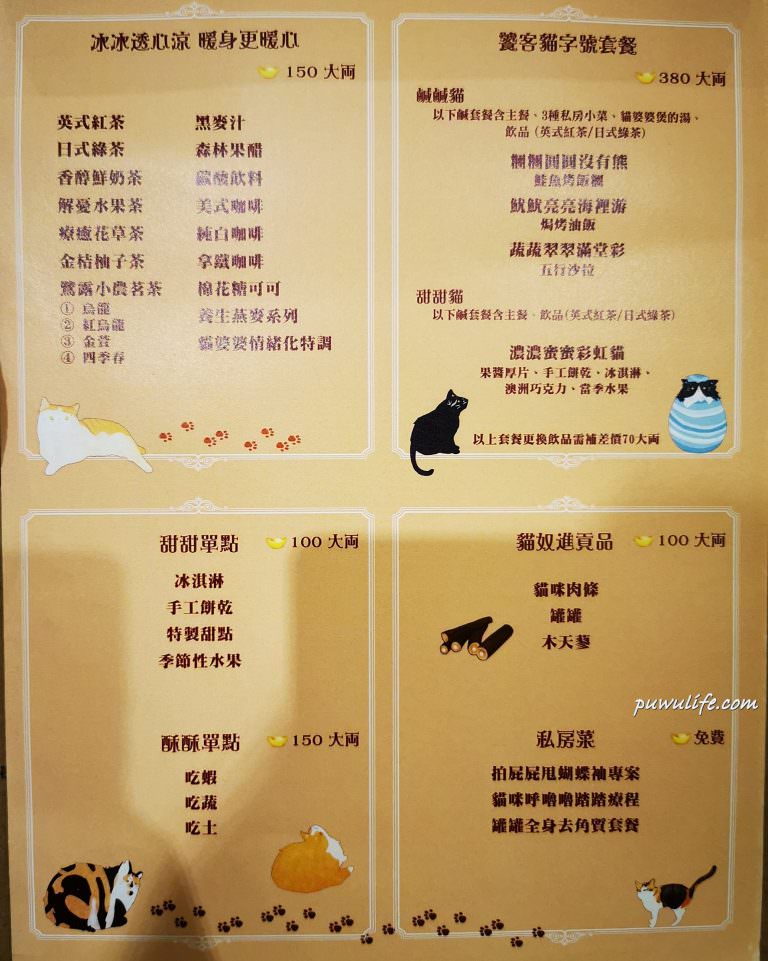 冰冰透心涼 暖身更暖心
150 大両
英式紅茶
日式綠茶
香醇鮮奶茶
解憂水果茶
療癒花草茶
金桔柚子茶
鷺露小農茗茶
① 烏龍
② 紅烏龍
③ 金萱
④ 四季春
黑麥汁
森林果醋
碳酸飲料
美式咖啡
純白咖啡
拿鐵咖啡
棉花糖可可
養生燕麥系列
貓婆婆情緒化特調
饕客貓字號套餐
380 大両
鹹鹹貓
以下鹹套餐含主餐、3種私房小菜、貓婆婆煲的湯、
飲品 (英式紅茶/日式綠茶)
糰糰圓圓沒有熊
鮭魚烤飯糰
魷魷亮亮海裡游
焗烤油飯
蔬蔬翠翠滿堂彩
五行沙拉
甜甜貓
以下鹹套餐含主餐、飲品(英式紅茶/日式綠茶)
濃濃蜜蜜彩虹貓
果醬厚片、手工餅乾、冰淇淋、
澳洲巧克力、當季水果
以上套餐更換飲品需補差價70大両
甜甜單點
100 大両
冰淇淋
手工餅乾
特製甜點
季節性水果
酥酥單點
150 大両
吃蝦
吃蔬
吃土
貓奴進貢品
100 大両
貓咪肉條
罐罐
木天蓼
puwulife.com
私房菜
免費
拍屁屁甩蝴蝶袖專案
貓咪呼嚕嚕踏踏療程
罐罐全身去角質套餐